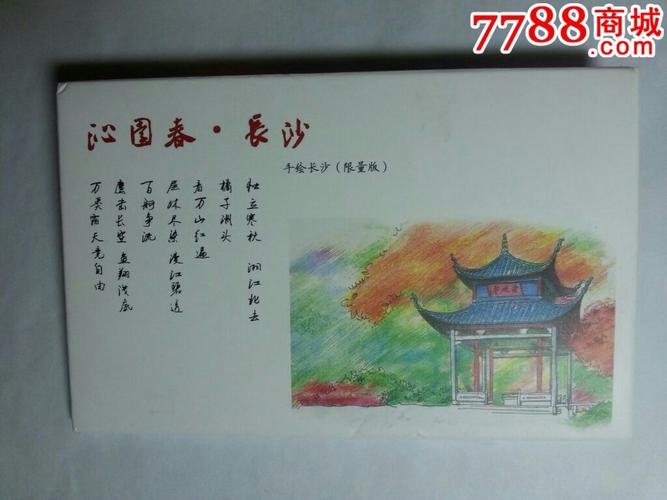 7788商城
.com
沁园春·長沙
手绘长沙（限量版）
独立寒秋 湘江北去
橘子洲头
看万山红遍
层林尽染 漫江碧透
百舸争流
鹰击长空 鱼翔浅底
万类霜天竞自由
爱晚亭